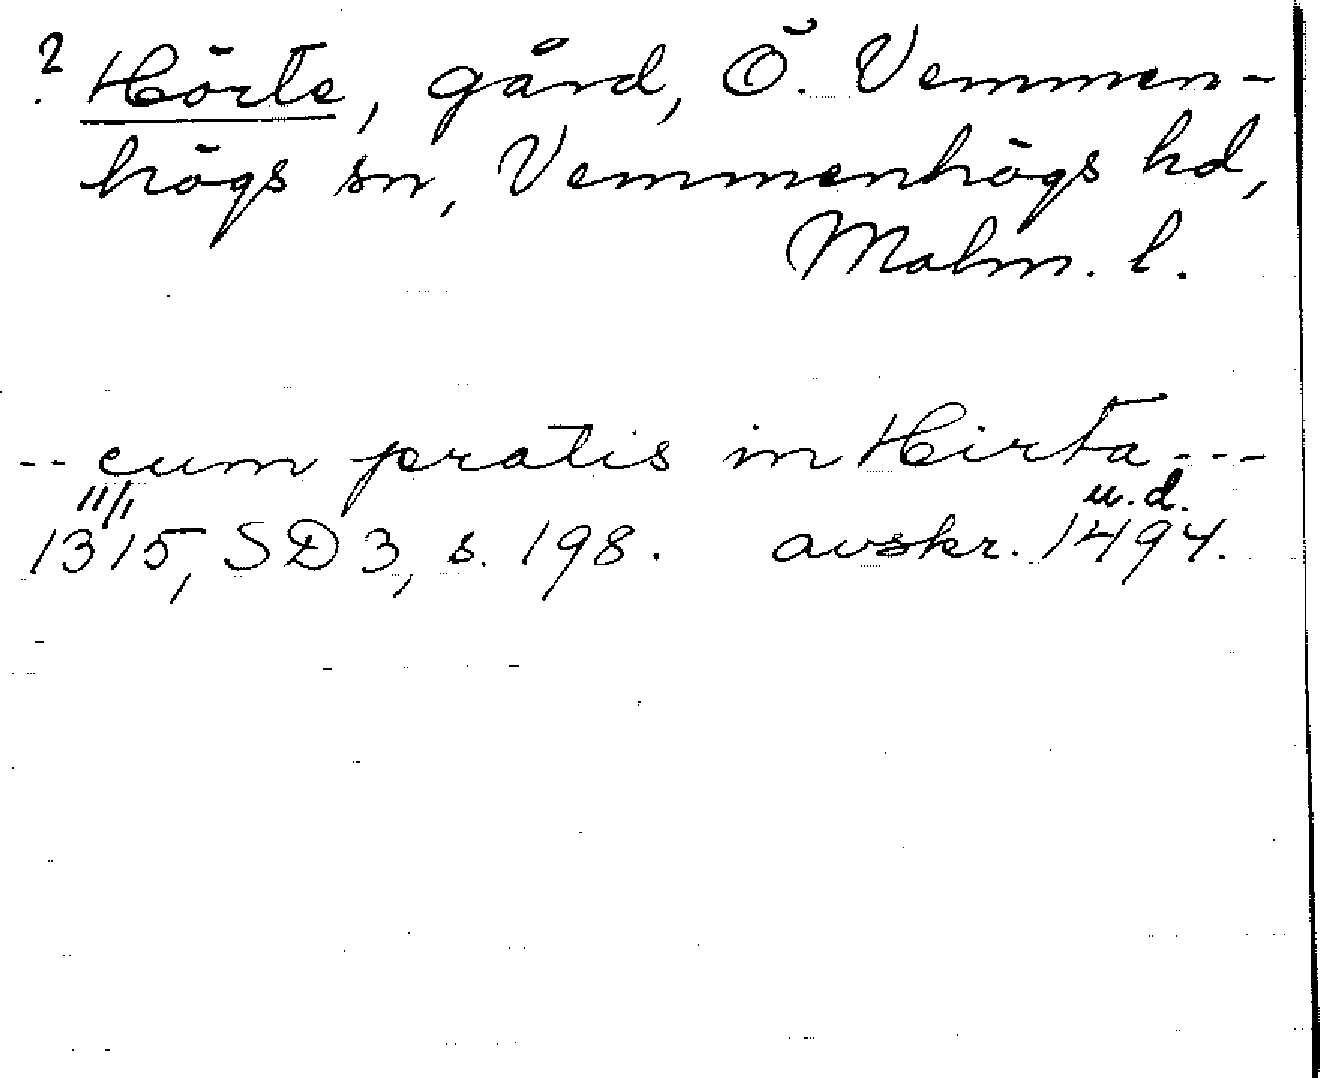 ? Hörte, gård, Ö. Vemmen-
högs sn, Vemmenhögs hd,
Malm. l.
-- cum pratis in Hirta ---
11/1 u.d.
1315, SD 3, s. 198. avskr. 1494.